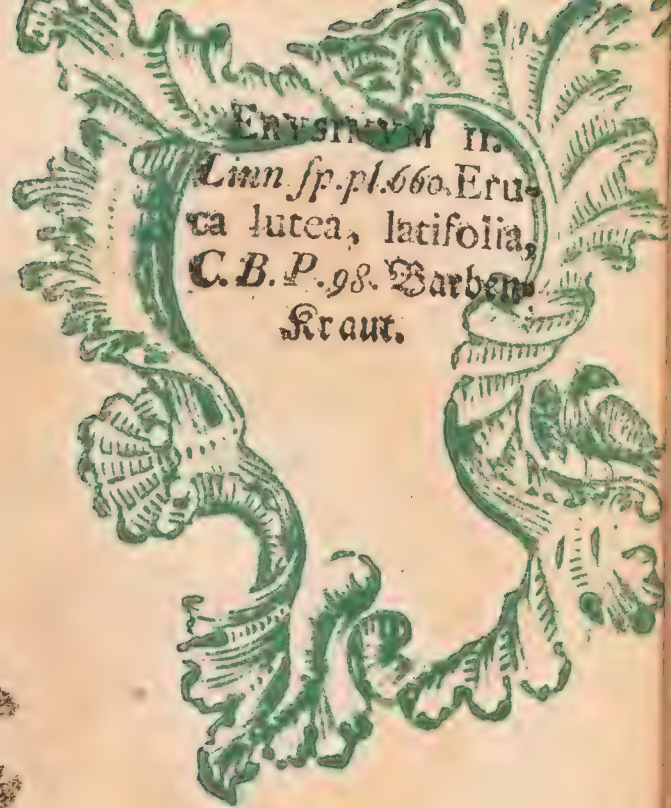 ERYSIMVM II.
Linn ſp.pl.660. Eru-
ca lutea, latifolia,
C. B. P. 98. Barben-
Kraut.